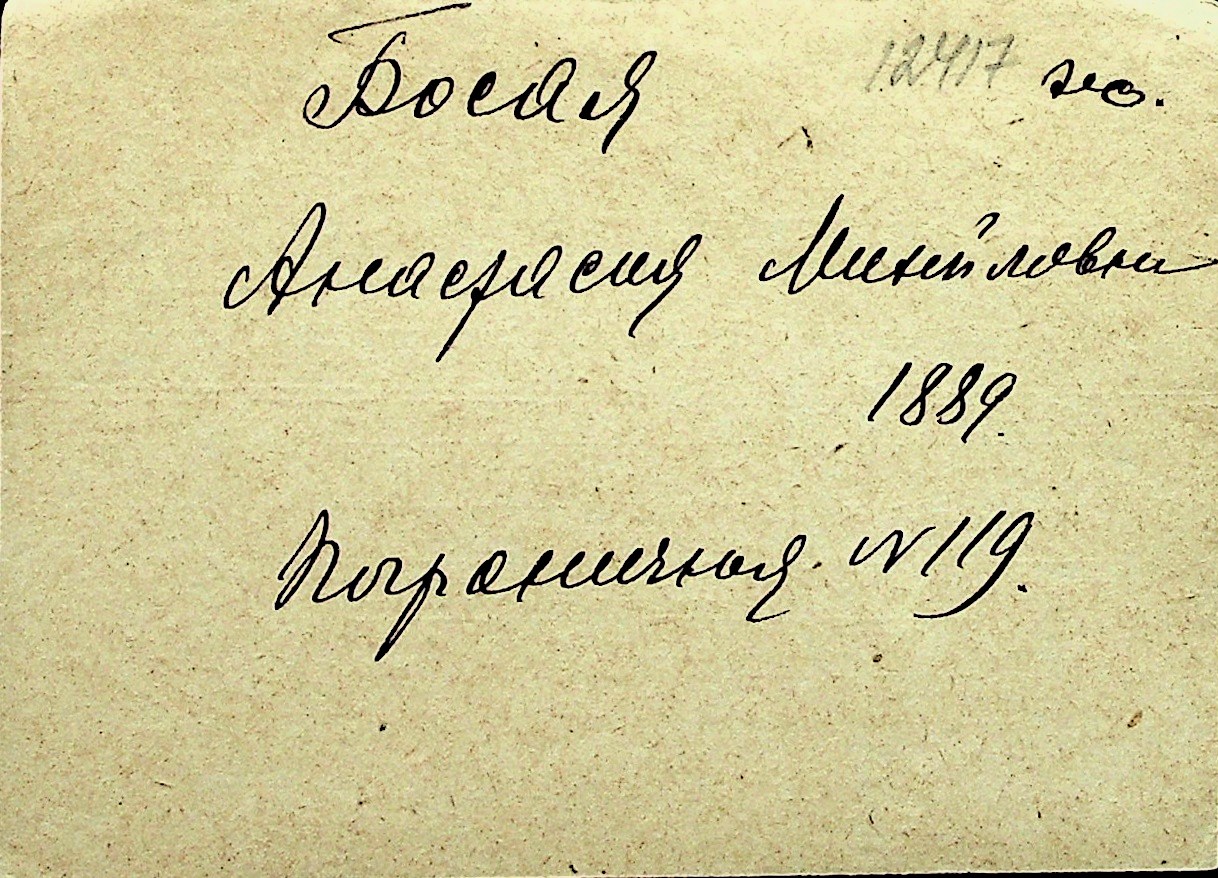 Босая 12417 но.
Анастасия Михайловна
1889.
Пограничная. N 119.